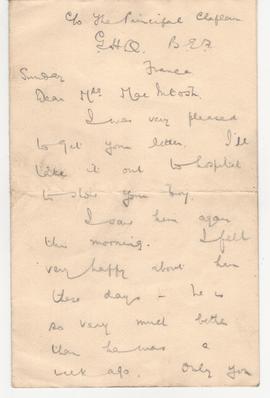 c/o The Principal Chaplain
G.H.Q. B.E.F.
France
Sunday
Dear Mrs. MacIntosh.
I was very pleased
to get your letter. I'll
take it out to hospital
to show your boy.
I saw him again
this morning. I felt
very happy about him
these days – he is
so very much better
than he was a
week ago. Only you